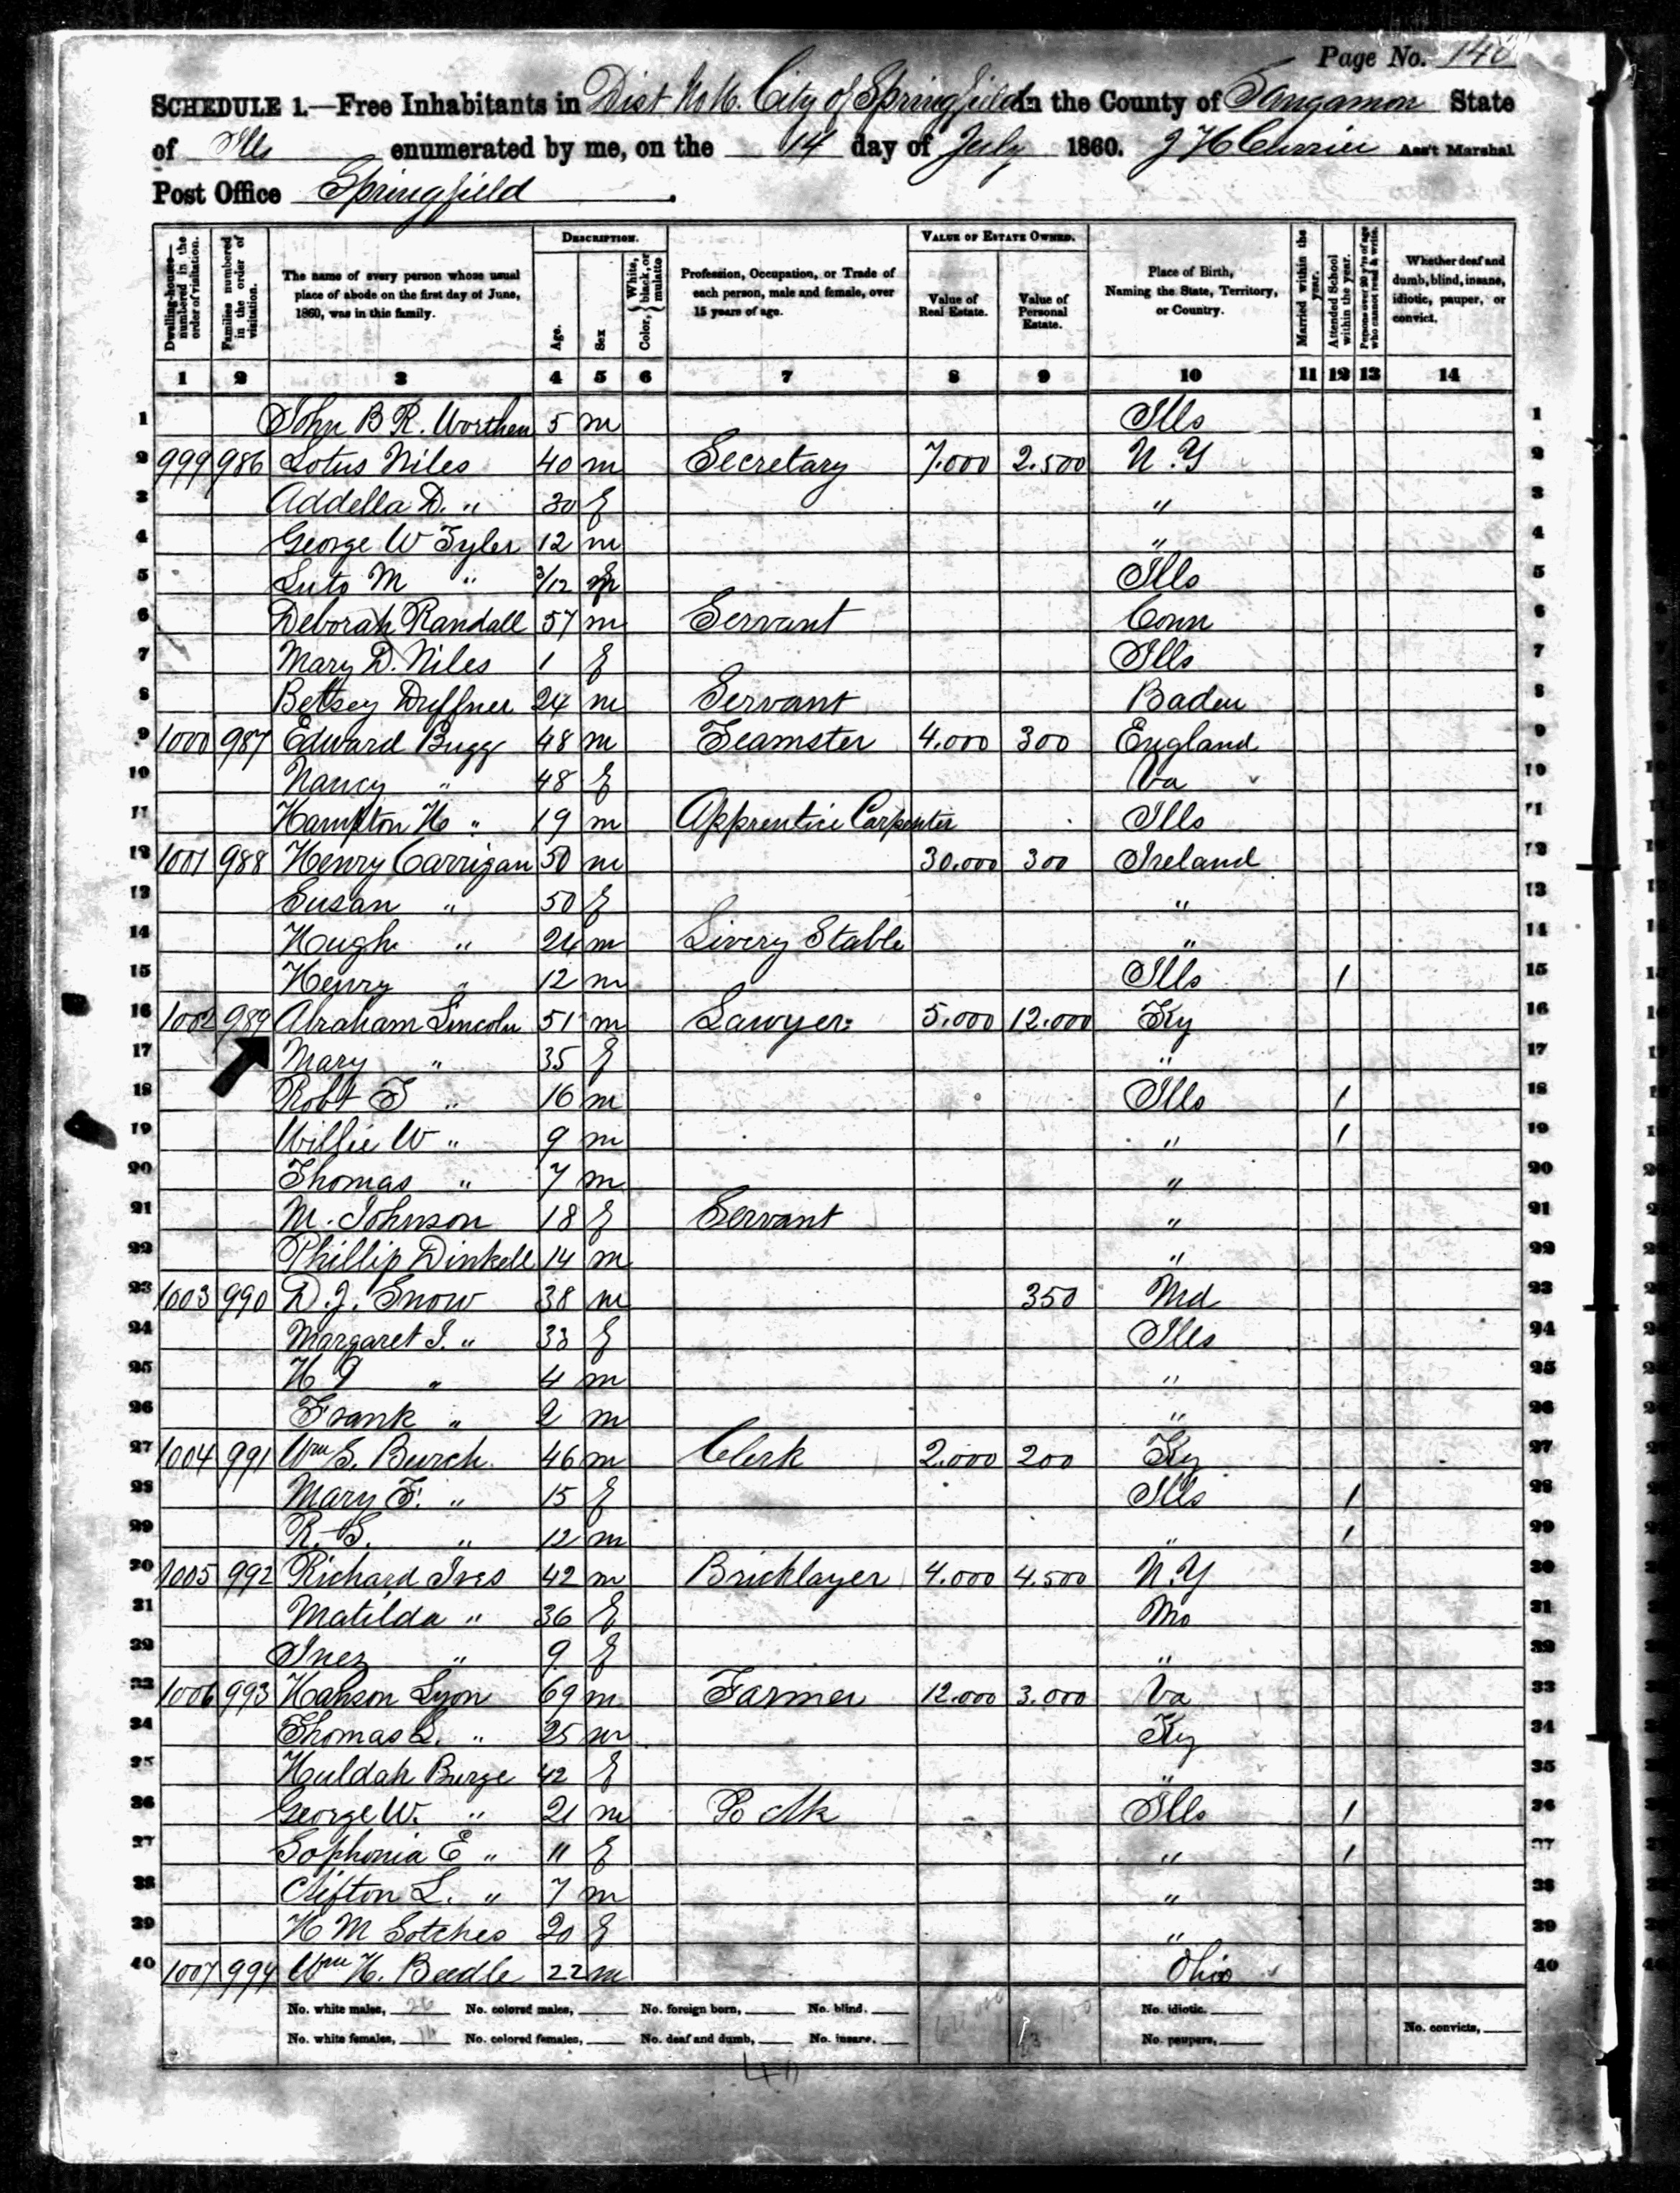 Page No. 140
SCHEDULE 1.—Free Inhabitants in Dist No 16. City of Springfield in the County of Sangamon State
of Ills enumerated by me, on the 14 day of July 1860. J H Currier Ass't Marshal
Post Office Springfield.
Dwelling-house—numbered in the order of visitation.
Families numbered in the order of visitation.
The name of every person whose usual place of abode on the first day of June, 1860, was in this family.
DESCRIPTION.
Age.
Sex
Color, White, black, or mulatto
Profession, Occupation, or Trade of each person, male and female, over 15 years of age.
VALUE OF ESTATE OWNED.
Value of Real Estate.
Value of Personal Estate.
Place of Birth, Naming the State, Territory, or Country.
Married within the year.
Attended School within the year.
Persons over 20 y'rs of age who cannot read & write.
Whether deaf and dumb, blind, insane, idiotic, pauper, or convict.
1 2 3 4 5 6 7 8 9 10 11 12 13 14
1 John B R. Worthen 5 m Ills 1
2 999 986 Lotus Niles 40 m Secretary 7.000 2.500 N.Y 2
3 Addella D. " 30 f " 3
4 George W Tyler 12 m " 4
5 M " 3/12 Ills 5
6 Deborah Randall 57 m Servant Conn 6
7 Mary D. Niles 1 f Ills 7
8 Betsey Duffner 24 m Servant Baden 8
9 1000 987 Edward Bugg 48 m Teamster 4.000 300 England 9
10 Nancy " 48 f Va 10
11 Hampton H " 19 m Apprentice Carpenter Ills 11
12 1001 988 Henry Carrigan 50 m 30.000 300 Ireland 12
13 Susan " 50 f " 13
14 Hough " 24 m Livery Stable " 14
15 Henry " 12 m Ills / 15
16 1002 989 Abraham Lincoln 51 m Lawyer 5.000 12.000 Ky 16
17 Mary " 35 f " 17
18 Robt T " 16 m Ills / 18
19 Willie W " 9 m " / 19
20 Thomas " 7 m " 20
21 M. Johnson 18 f Servant " 21
22 Phillip Dinkell 14 m " 22
23 1003 990 D. J. Snow 38 m 350 Md 23
24 Margaret I. " 33 f Ills 24
25 H " 4 m " 25
26 Frank " 2 m " 26
27 1004 991 Wm S. Burch 46 m Clerk 2.000 200 Ky 27
28 Mary F. " 15 f Ills / 28
29 R. S. " 12 m " / 29
30 1005 992 Richard Ives 42 m Bricklayer 4.000 4.500 N.Y 30
31 Matilda " 36 f Mo 31
32 Inez " 9 f " 32
33 1006 993 Hanson Lyon 69 m Farmer 12.000 3.000 Va 33
34 Thomas L. " 25 m Ky 34
35 Huldah Burge 42 f " 35
36 George W. " 21 m Ills / 36
37 Sophonia E " 11 f " / 37
38 Clifton L. " 7 m " 38
39 H M Sotches 20 f " 39
40 1007 994 Wm H. Beedle 22 m Ohio 40
No. white males, 26 No. colored males, No. foreign born, No. blind. No. idiotic.
No. white females, No. colored females, No. deaf and dumb, No. insane, No. paupers, No. convicts,
40